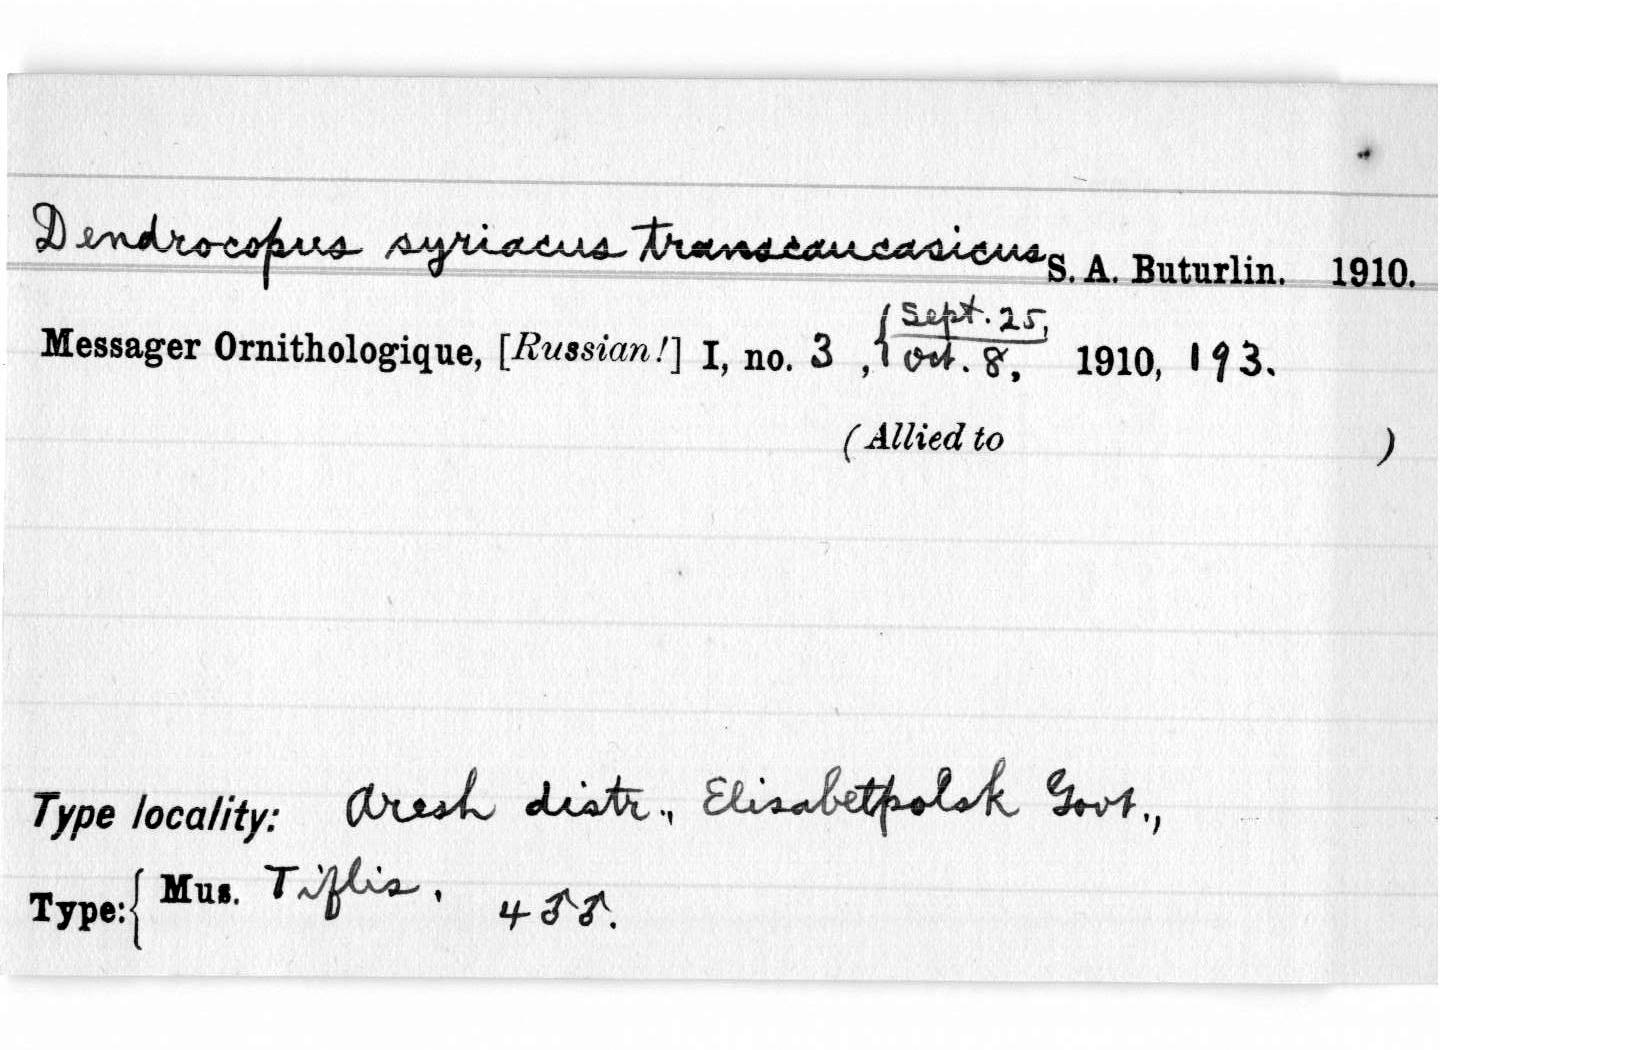 Dendrocopus syriacus transcaucasicus S. A. Buturlin. 1910.
Messager Ornithologique, [Russian!] I, no. 3, { Sept. 25, / Oct. 8, 1910, 193.
(Allied to )
Type locality: Aresh distr., Elisabetpolsk Govt.,
Type: { Mus. Tiflis. 4 ♂♂.